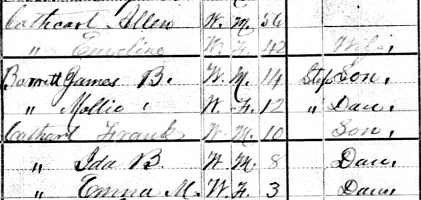 Cathcart Allen W. M. 56
" Emeline W. F. 42 Wife,
Barrett James B. W. M. 14 Step Son,
" Mollie W. F. 12 " Dau,
Cathcart Frank W M. 10 Son,
" Ida B. W M. 8 Dau,
" Emma M. W. F. 3 Dau,